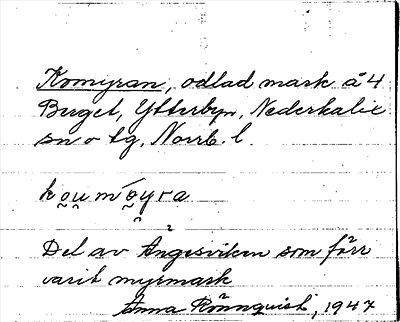 Komyran, odlad mark å 4
Berget, Ytterbyn, Nederkalix
sn o tg, Norrb. l.
ko̬u̬mo̬̒yra
Del av Ängesviken som förr
varit myrmark
Anna Rönnquist, 1947